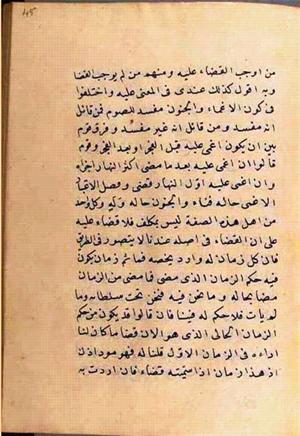 ٤٥
من اوجب القضاء عليه ومنهم من لم يوجب القضا
وبه اقول كذلك عندى فى المغمى عليه واختلفوا
فى كون الاغماء والجنون مفسد للصوم فمن قائل
انه مفسد ومن قائل انه غير مفسد وفرق قوم
بين ان يكون اغمى عليه قبل الفجر او بعد الفجر وقوم
قالوا ان اغمى عليه بعد ما مضى اكثر النهار اجزاه
وان اغمى عليه اول النهار قضى وصل الاغماء
الاغمى حالة فناء والجنون حالة وله وكل واحد
من اهل هذه الصفة ليس بمكلف فلا قضاء عليه
على ان القضاء فى اصله عندنا لا يتصور فى الطريق
فان كل زمان له وارد يخصه فما ثم زمان يكون
فيه حكم الزمان الذى مضى فما مضى من الزمان
مضا بحاله وما نحن فيه فنحن تحت سلطانه وما
لم يات فلا حكم له فينا فان قالوا قد يكون من حكم
الزمان الحالى الذى هو الان قضا ما كان لنا
اداءه فى الزمان الاول قلنا له فهو مود اذن
اذ هذا زمان اذا سميته قضاء فان اردت به